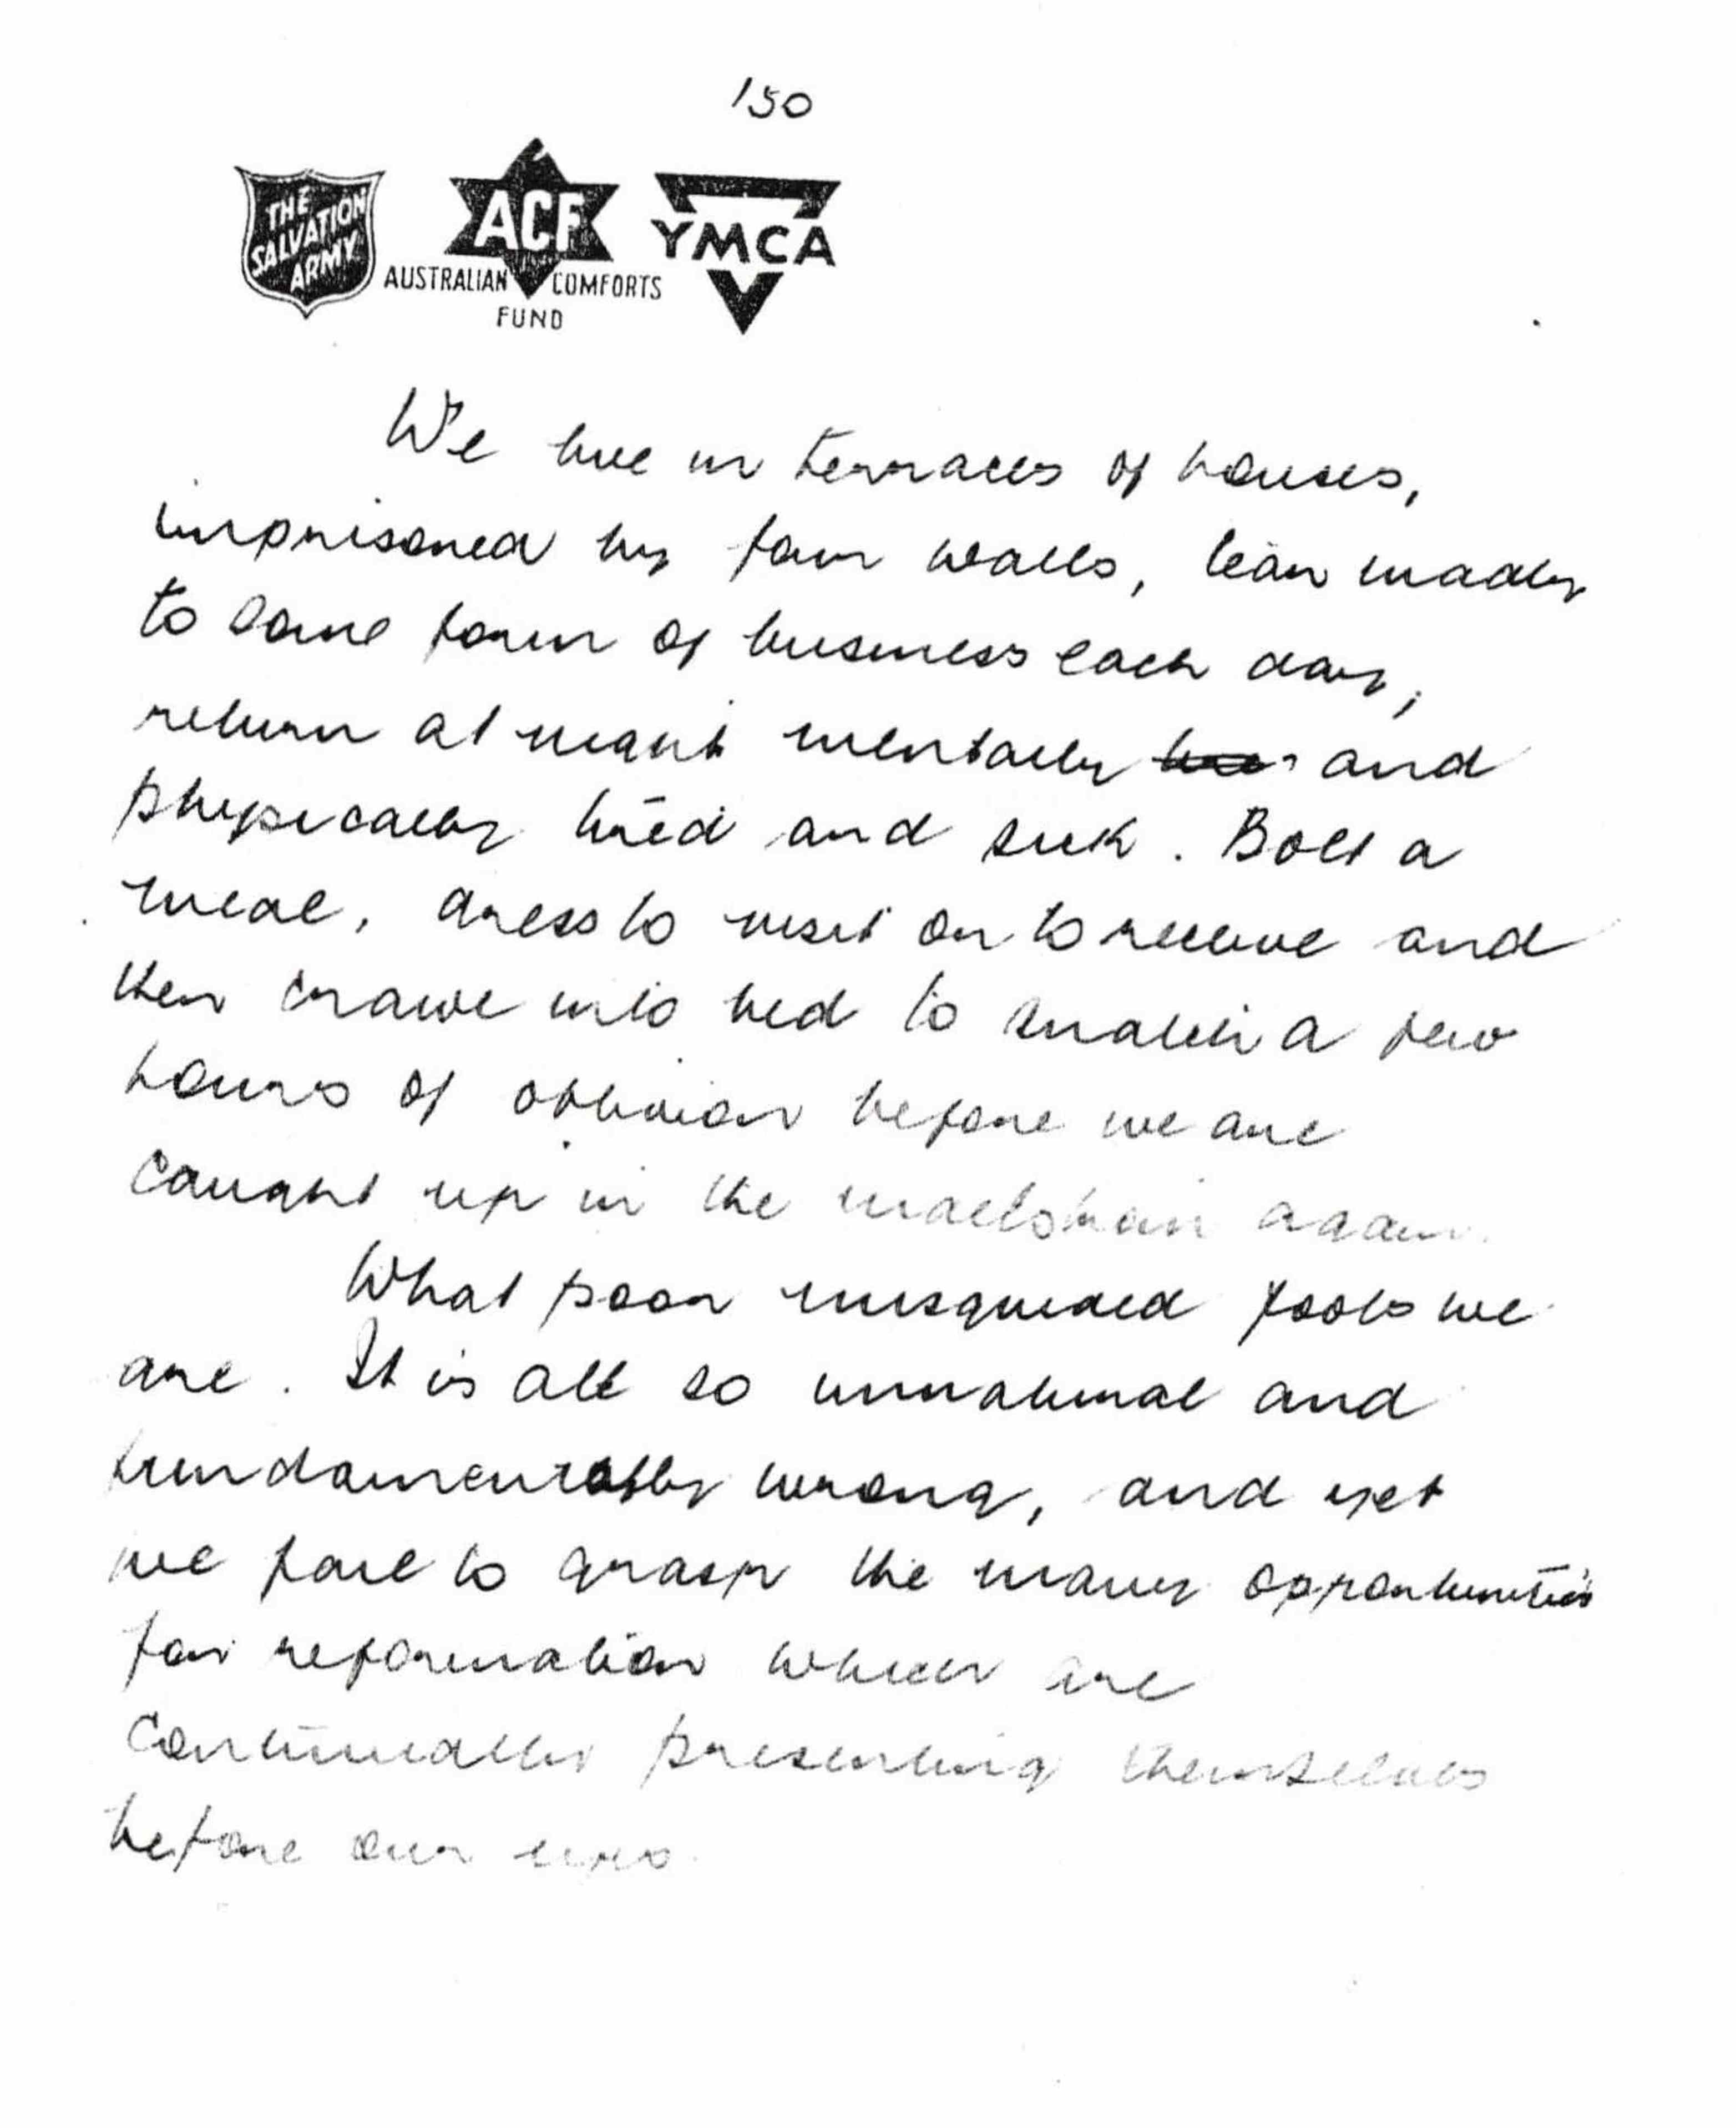 150
THE SALVATION ARMY
ACF
AUSTRALIAN COMFORTS
FUND
YMCA
We live in terraces of houses,
imprisoned by four walls, tear madly
to some form of business each day,
return at night mentally and
physically tired and sick. Bolt a
meal, dress to visit or to receive and
then crawl into bed to snatch a few
hours of oblivion before we are
caught up in the maelstrom again.
What poor misguided fools we
are. It is all so unnatural and
fundamentally wrong, and yet
we fail to grasp the many opportunities
for reformation which are
continually presenting themselves
before our eyes.